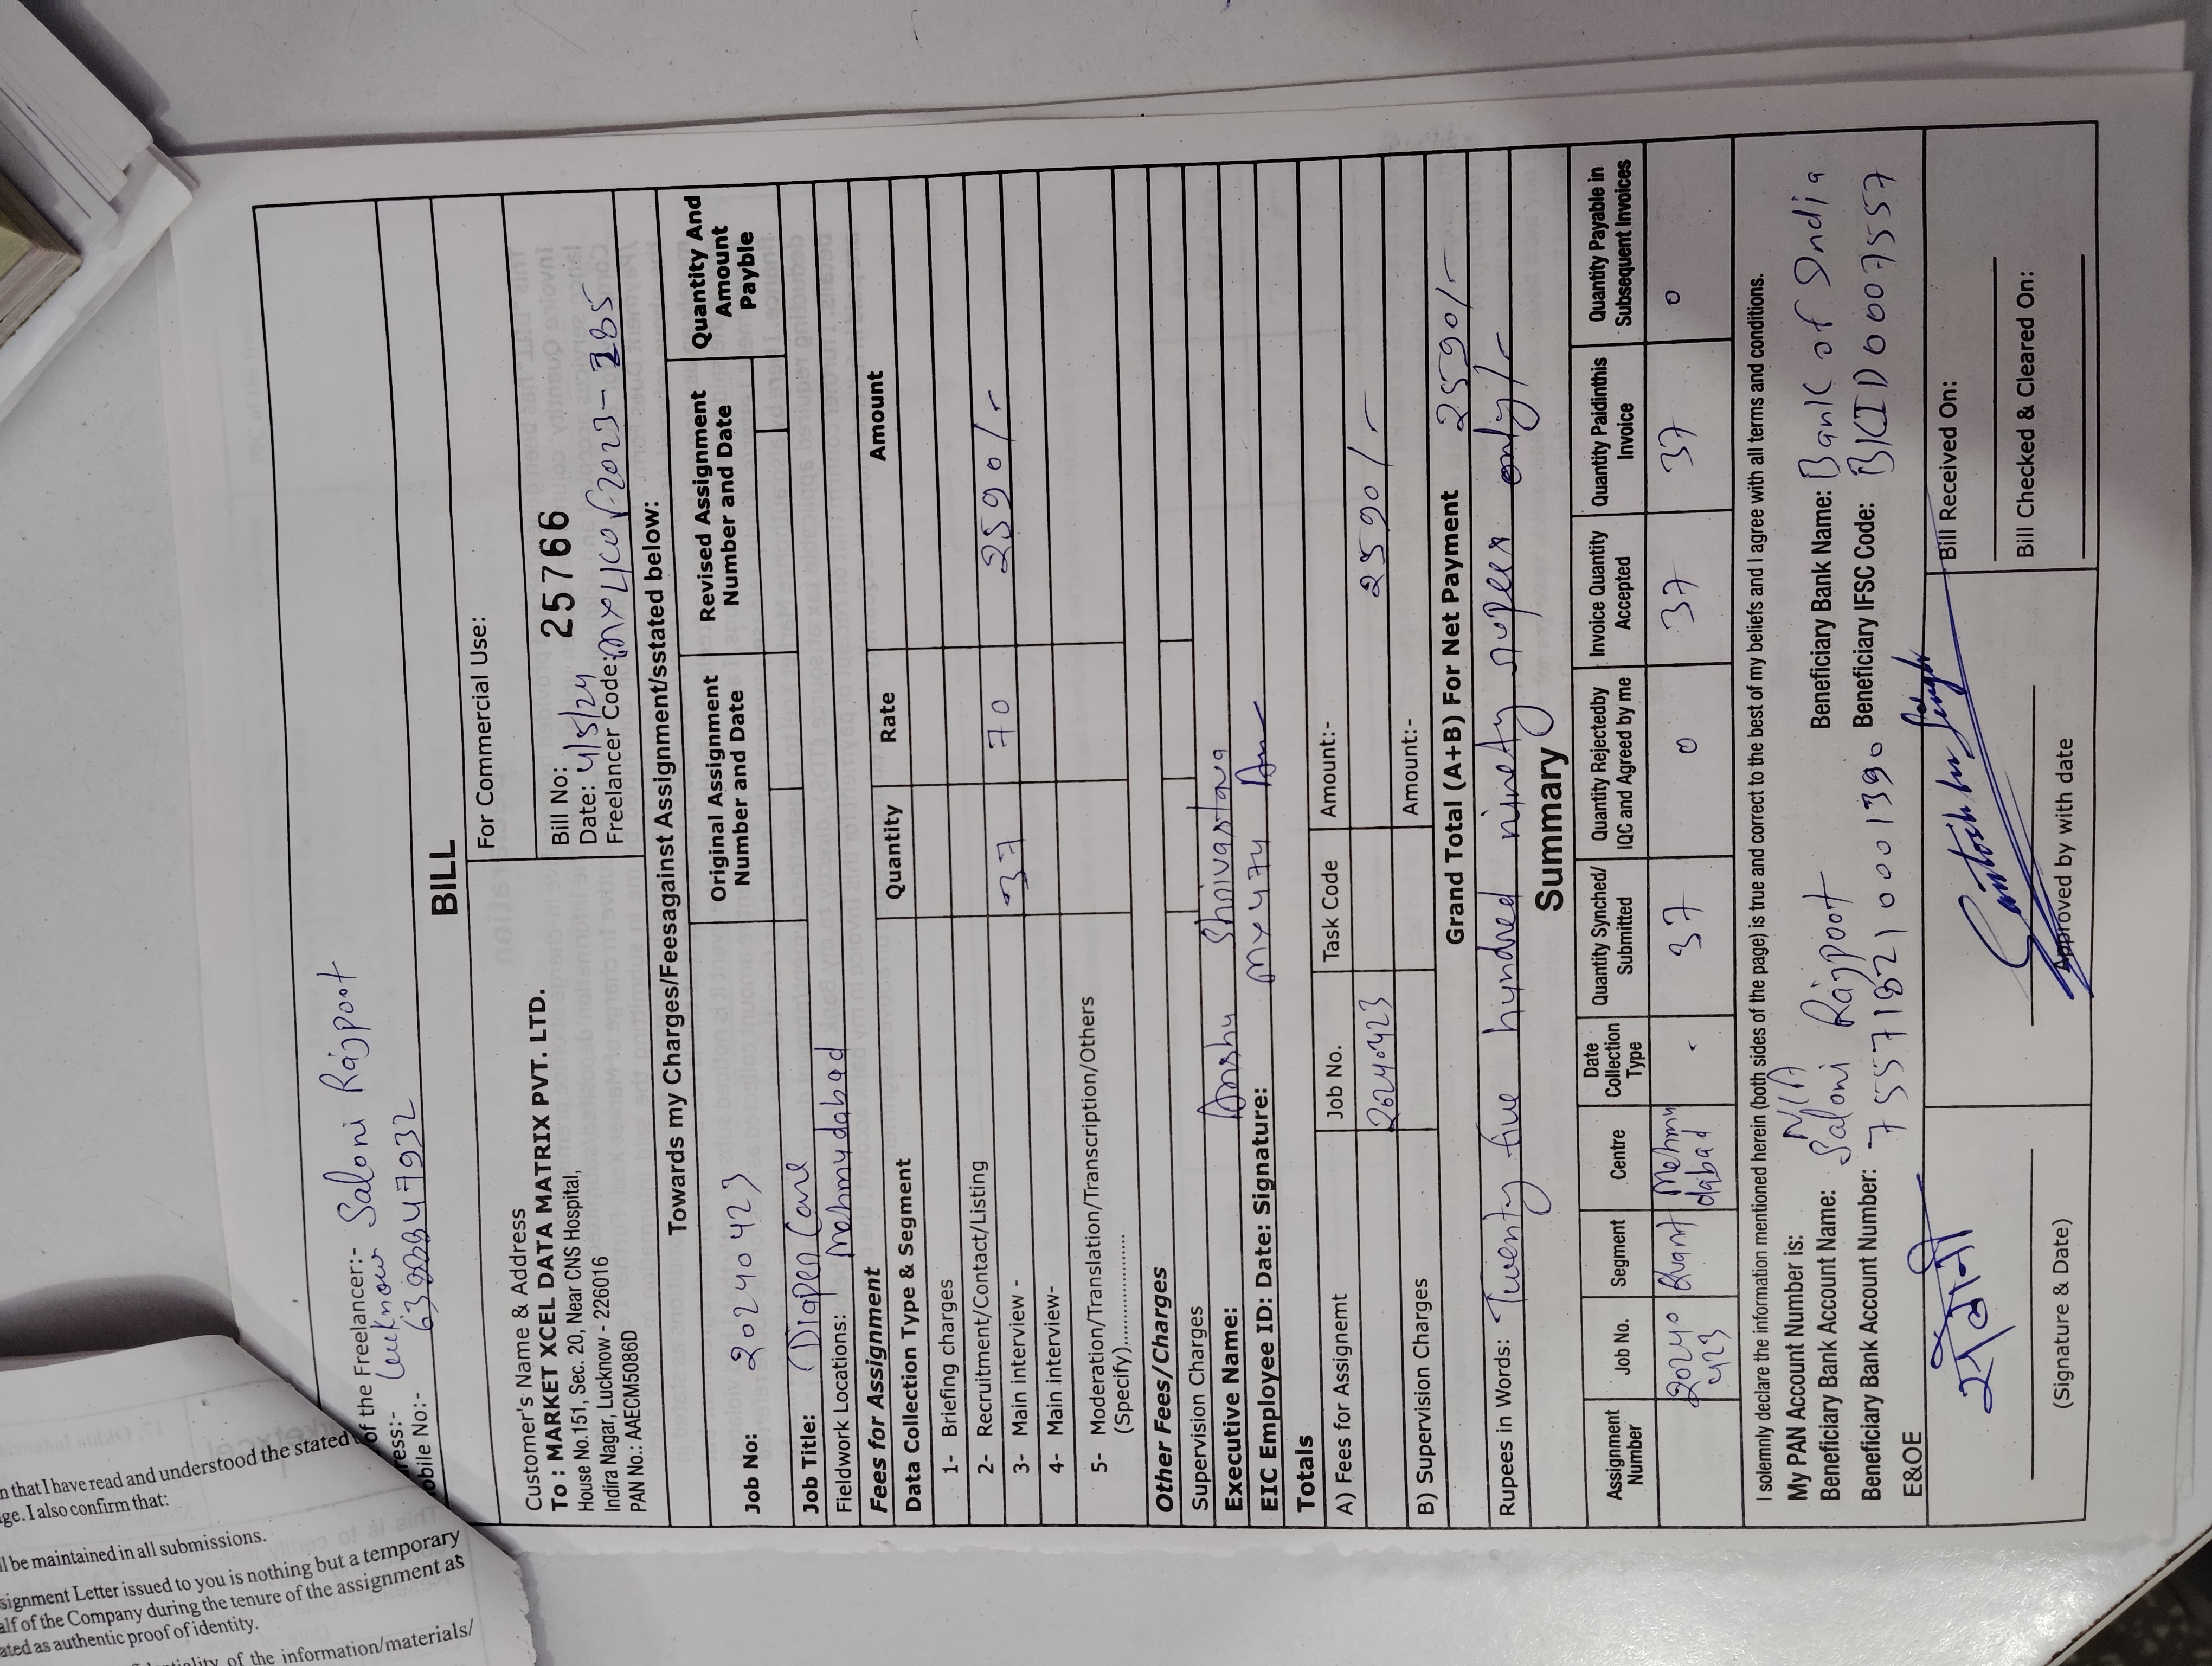 of the Freelancer:- Saloni Rajpoot
ress:- Lucknow
obile No:-
BILL
For Commercial Use:
Customer's Name & Address
To : MARKET XCEL DATA MATRIX PVT. LTD.
House No.151, Sec. 20, Near CNS Hospital,
Indira Nagar, Lucknow - 226016
PAN No.: AAECM5086D
Bill No: 25766
Date: 4/5/24
Freelancer Code:
Towards my Charges/Feesagainst Assignment/sstated below:
Job No: 20240423
Original Assignment Number and Date
Revised Assignment Number and Date
Quantity And Amount Payble
Job Title: Diaper Care
Fieldwork Locations: Mahmudabad
Fees for Assignment
Data Collection Type & Segment Quantity Rate Amount
1- Briefing charges
2- Recruitment/Contact/Listing
3- Main interview - 37 70 2590/-
4- Main interview-
5- Moderation/Translation/Transcription/Others
(Specify)......................
Other Fees/Charges
Supervision Charges
Executive Name: Anshu Shrivastava
EIC Employee ID: Date: Signature: MX4774
Totals
A) Fees for Assignemt Job No. Task Code Amount:-
20240423 2590/-
B) Supervision Charges Amount:-
Grand Total (A+B) For Net Payment 2590/-
Rupees in Words: Twenty five hundred ninety rupees only/-
Summary
Assignment Number Job No. Segment Centre Date Collection Type Quantity Synched/ Submitted Quantity Rejectedby IQC and Agreed by me Invoice Quantity Accepted Quantity Paidinthis Invoice Quantity Payable in Subsequent Invoices
20240423 Quant Mehmudabad - 37 0 37 37 0
I solemnly declare the information mentioned herein (both sides of the page) is true and correct to the best of my beliefs and I agree with all terms and conditions.
My PAN Account Number is: N/A
Beneficiary Bank Account Name: Saloni Rajpoot Beneficiary Bank Name: Bank of India
Beneficiary Bank Account Number: 755718210001390 Beneficiary IFSC Code: BKID0007557
E&OE
सलोनी
(Signature & Date)
Santosh Kr Singh
Approved by with date
Bill Received On:
Bill Checked & Cleared On:
n that I have read and understood the stated
ge. I also confirm that:
ll be maintained in all submissions.
signment Letter issued to you is nothing but a temporary
alf of the Company during the tenure of the assignment as
ated as authentic proof of identity.
of the information/materials/